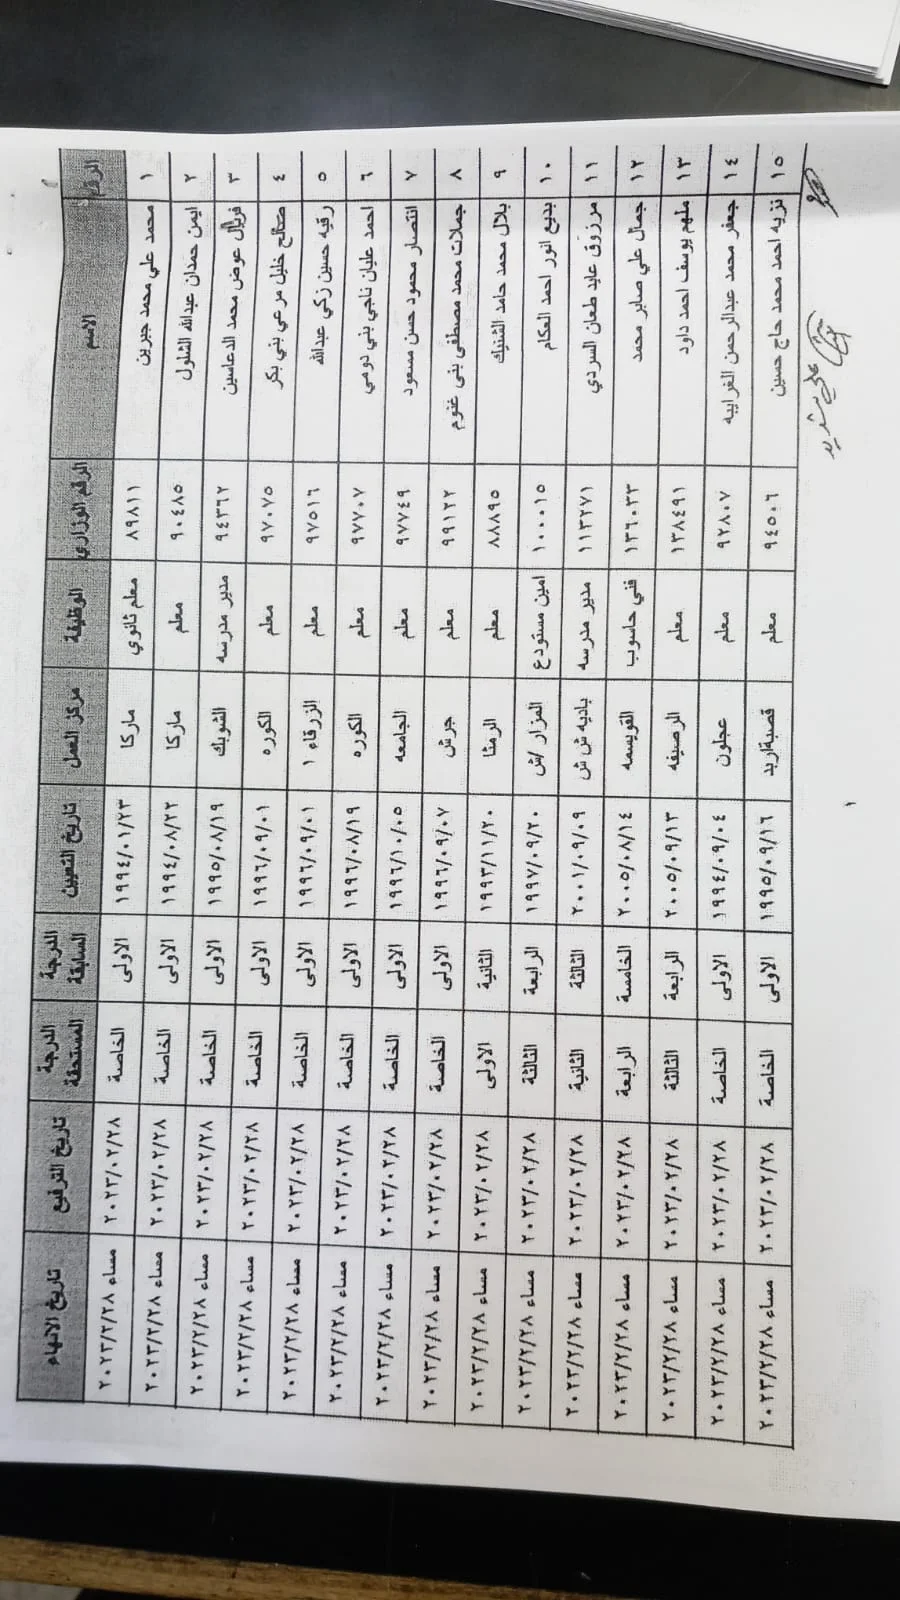 الرقم الاسم الرقم الوزاري الوظيفة مركز العمل تاريخ التعيين الدرجة السابقة الدرجة المستحقة تاريخ الترفيع تاريخ الانهاء
١ محمد علي محمد جبرين ٨٩٨١١ معلم ثانوي ماركا ١٩٩٤/٠١/٢٣ الاولى الخاصة ٢٠٢٣/٠٢/٢٨ مساء ٢٠٢٣/٢/٢٨
٢ ايمن حمدان عبدالله الشلول ٩٠٤٨٥ معلم ماركا ١٩٩٤/٠٨/٢٢ الاولى الخاصة ٢٠٢٣/٠٢/٢٨ مساء ٢٠٢٣/٢/٢٨
٣ فريال عوض محمد الدعاسين ٩٤٣٦٢ مدير مدرسه الشوبك ١٩٩٥/٠٨/١٩ الاولى الخاصة ٢٠٢٣/٠٢/٢٨ مساء ٢٠٢٣/٢/٢٨
٤ صالح خليل مرعي بني بكر ٩٧٠٧٥ معلم الكوره ١٩٩٦/٠٩/٠١ الاولى الخاصة ٢٠٢٣/٠٢/٢٨ مساء ٢٠٢٣/٢/٢٨
٥ رقيه حسين زكي عبدالله ٩٧٥١٦ معلم الزرقاء ١ ١٩٩٦/٠٩/٠١ الاولى الخاصة ٢٠٢٣/٠٢/٢٨ مساء ٢٠٢٣/٢/٢٨
٦ احمد عليان ناجي بني دومي ٩٧٧٠٧ معلم الكوره ١٩٩٦/٠٨/١٩ الاولى الخاصة ٢٠٢٣/٠٢/٢٨ مساء ٢٠٢٣/٢/٢٨
٧ انتصار محمود حسن مسعود ٩٧٧٤٩ معلم الجامعه ١٩٩٦/١٠/٠٥ الاولى الخاصة ٢٠٢٣/٠٢/٢٨ مساء ٢٠٢٣/٢/٢٨
٨ جملات محمد مصطفى بنى غنوم ٩٩١٢٢ معلم جرش ١٩٩٦/٠٩/٠٧ الاولى الخاصة ٢٠٢٣/٠٢/٢٨ مساء ٢٠٢٣/٢/٢٨
٩ بلال محمد حامد الشنيك ٨٨٨٩٥ معلم الرمثا ١٩٩٣/١١/٢٠ الثانية الاولى ٢٠٢٣/٠٢/٢٨ مساء ٢٠٢٣/٢/٢٨
١٠ بديع انور احمد العكام ١٠٠٠١٥ امين مستودع المزار /ش ١٩٩٧/٠٩/٢٠ الرابعة الثالثة ٢٠٢٣/٠٢/٢٨ مساء ٢٠٢٣/٢/٢٨
١١ مرزوق عايد طعان السردي ١١٣٢٧١ مدير مدرسه باديه ش ش ٢٠٠١/٠٩/٠٩ الثالثة الثانية ٢٠٢٣/٠٢/٢٨ مساء ٢٠٢٣/٢/٢٨
١٢ جمال علي صابر محمد ١٣٦٠٣٣ فني حاسوب القويسمه ٢٠٠٥/٠٨/١٤ الخامسة الرابعة ٢٠٢٣/٠٢/٢٨ مساء ٢٠٢٣/٢/٢٨
١٣ ملهم يوسف احمد داود ١٣٨٤٩١ معلم الرصيفه ٢٠٠٥/٠٩/١٣ الرابعة الثالثة ٢٠٢٣/٠٢/٢٨ مساء ٢٠٢٣/٢/٢٨
١٤ جعفر محمد عبدالرحمن الغرايبه ٩٢٨٠٧ معلم عجلون ١٩٩٤/٠٩/٠٤ الاولى الخاصة ٢٠٢٣/٠٢/٢٨ مساء ٢٠٢٣/٢/٢٨
١٥ نزيه احمد محمد حاج حسين ٩٤٥٠٦ معلم قصبة اربد ١٩٩٥/٠٩/١٦ الاولى الخاصة ٢٠٢٣/٠٢/٢٨ مساء ٢٠٢٣/٢/٢٨
١